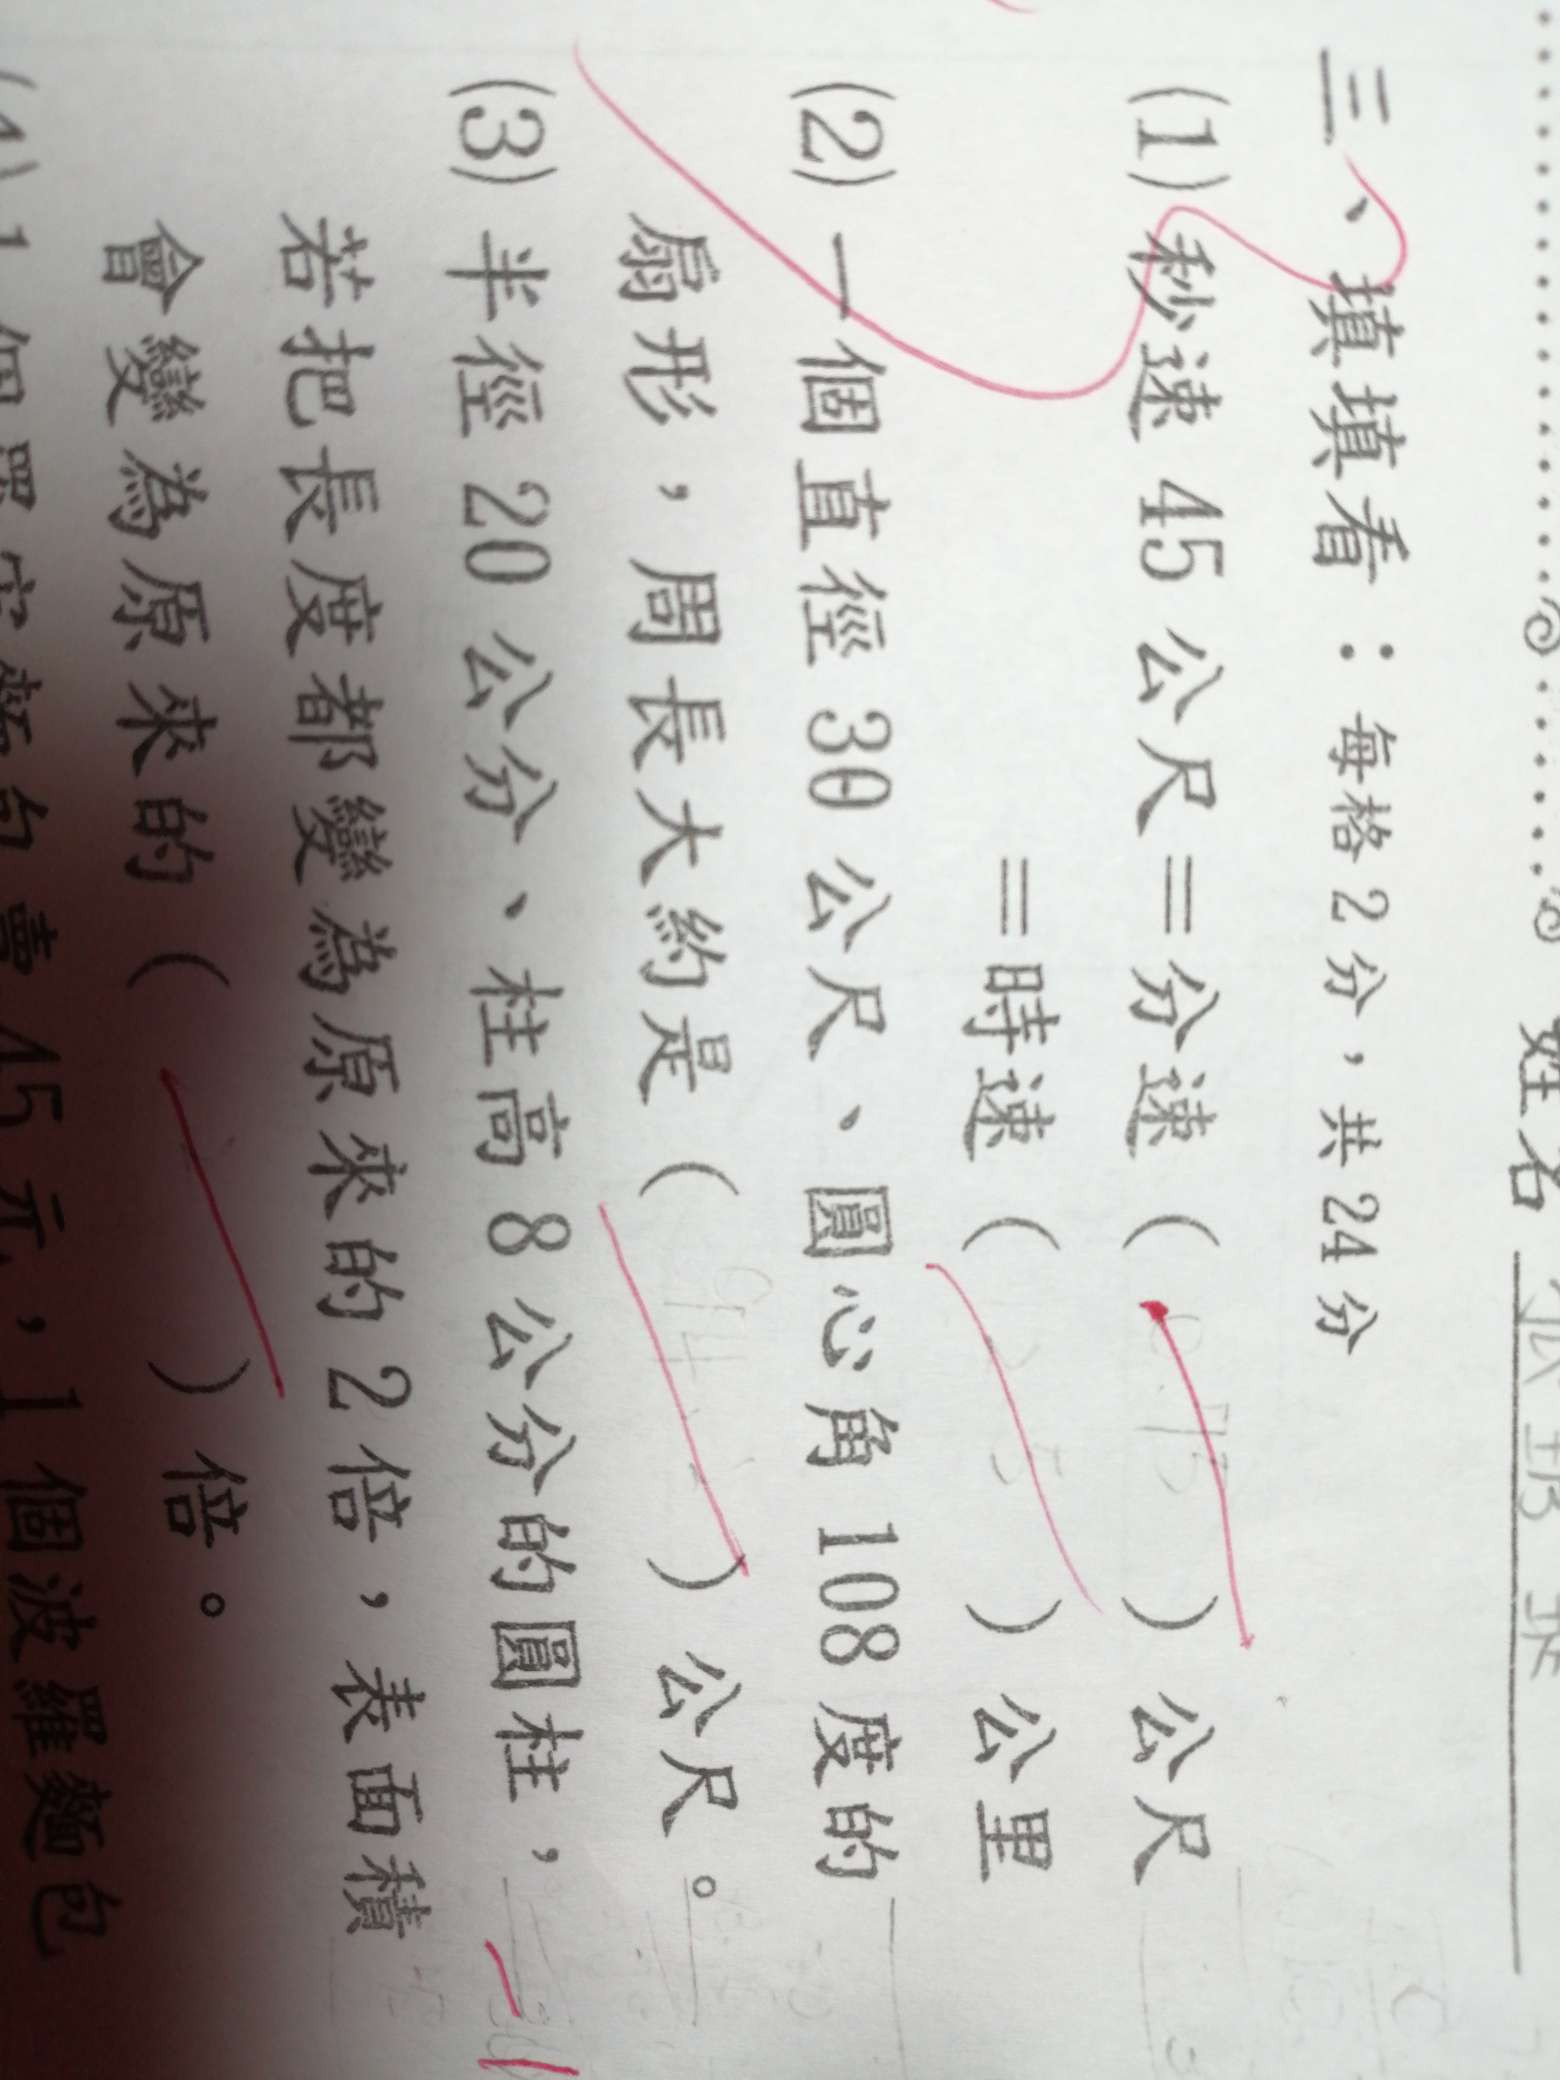 姓名
三、填填看：每格2分，共24分
(1) 秒速 45 公尺＝分速（ ）公尺
＝時速（ ）公里
(2) 一個直徑 30 公尺、圓心角 108 度的
扇形，周長大約是（ ）公尺。
(3) 半徑 20 公分、柱高 8 公分的圓柱，
若把長度都變為原來的 2 倍，表面積
會變為原來的（ ）倍。
45 元，1 個波羅麵包